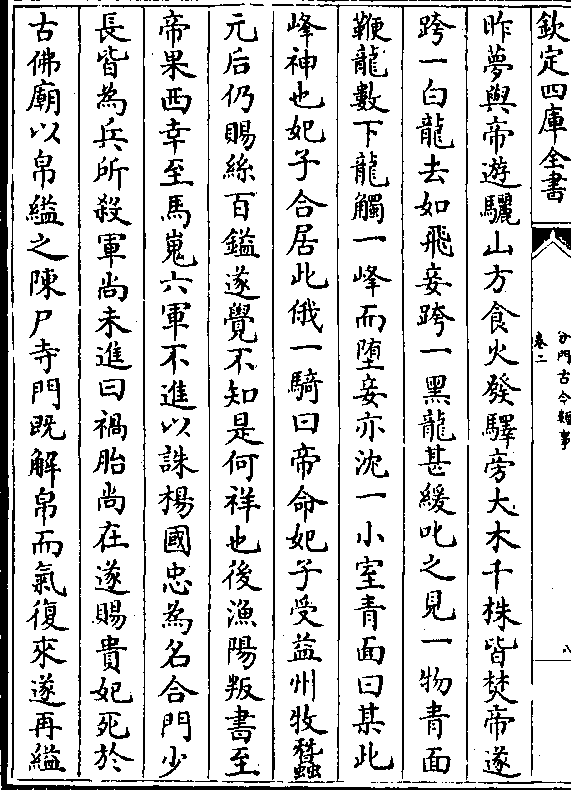 欽定四庫全書
分門古今類事
卷二
八
昨夢與帝遊驪山方食火發驛旁大木千株皆焚帝遂
跨一白龍去如飛妾跨一黑龍甚緩叱之見一物青面
鞭龍數下龍觸一峰而墮妾亦沈一小室青面曰某此
峰神也妃子合居此俄一騎曰帝命妃子受益州牧蠶
元后仍賜絲百鎰遂覺不知是何祥也後漁陽叛書至
帝果西幸至馬嵬六軍不進以誅楊國忠為名合門少
長皆為兵所殺軍尚未進曰禍胎尚在遂賜貴妃死於
古佛廟以帛縊之陳尸寺門既解帛而氣復來遂再縊